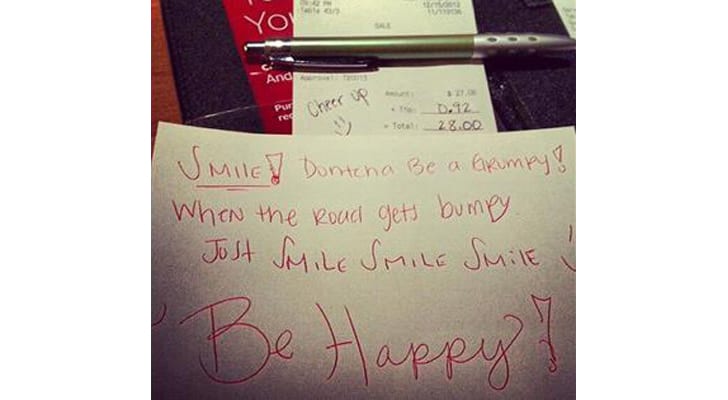 YO
And
Pur
rec
Table 43/3
12/15/2012
SALE
Cheer up
Amount: $ 27.08
+ Tip: 0.92
= Total: 28.00
SMILE! Dontcha Be a Grumpy!
When the Road gets bumpy
Just SMILE SMILE SMILE
Be Happy!